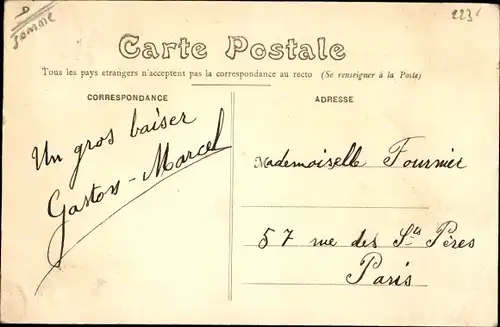 D
Somme
223
Carte Postale
Tous les pays etrangers n'acceptent pas la correspondance au recto (Se renseigner à la Poste)
CORRESPONDANCE
Un gros baiser
Gaston-Marcel
ADRESSE
Mademoiselle Fournier
57 rue des Sts Pères
Paris